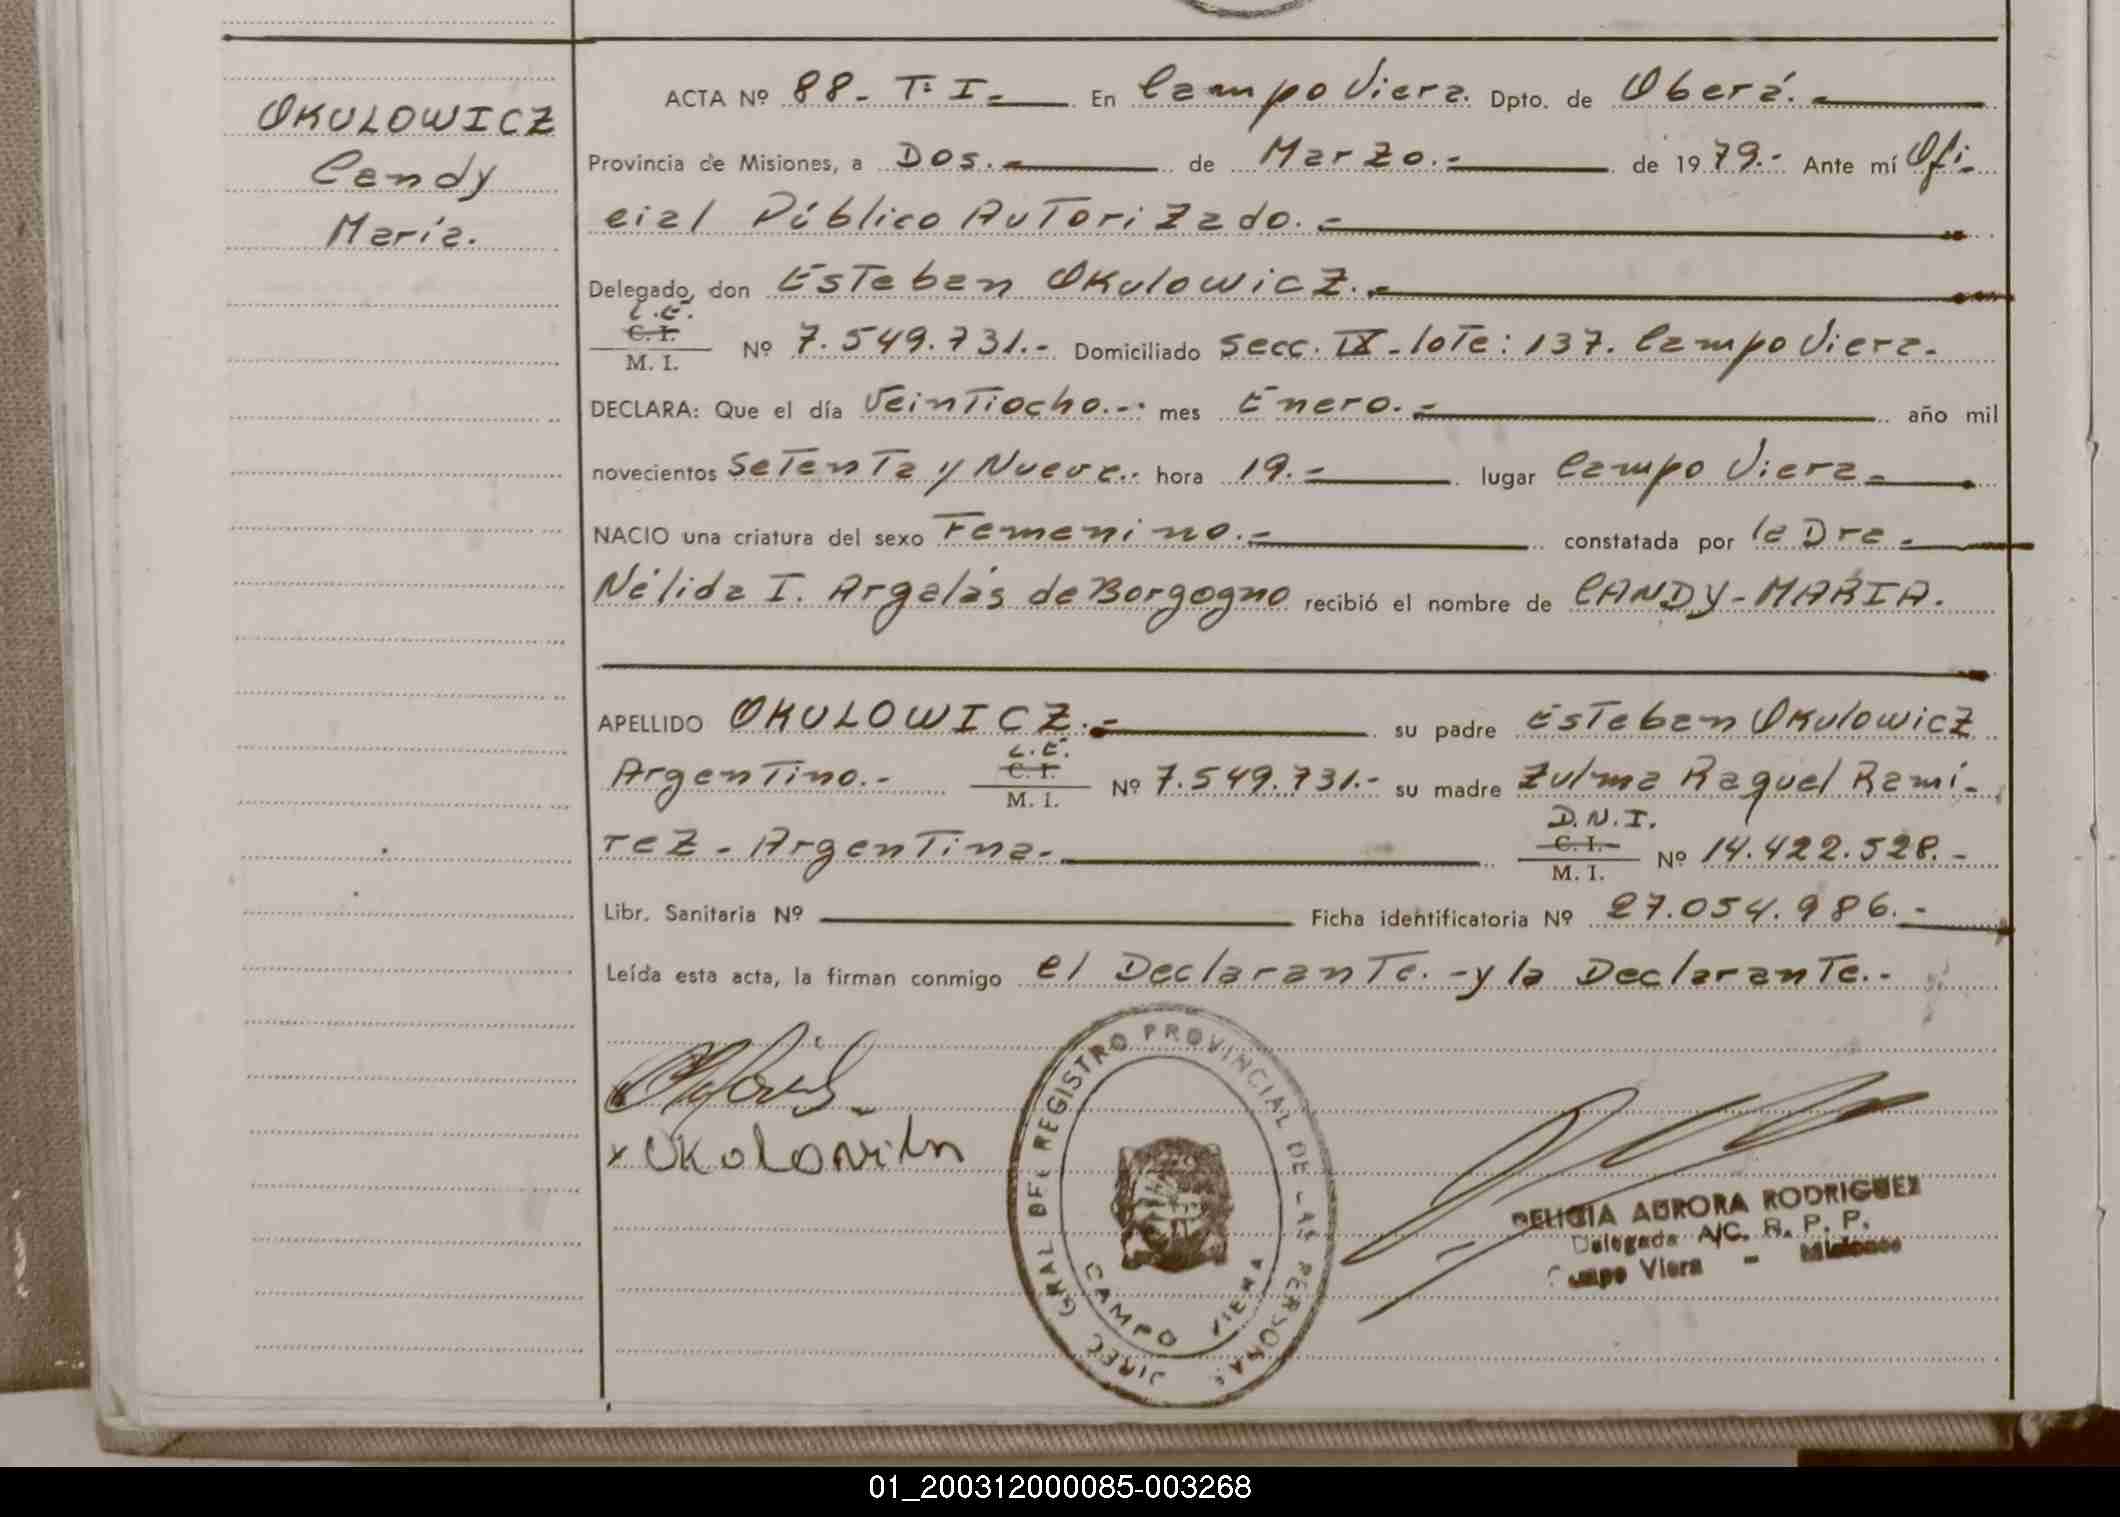 OKULOWICZ
Candy
María.
ACTA Nº 88- T: I.- En Campo Viera. Dpto. de Oberá.-
Provincia de Misiones, a Dos.- de Marzo.- de 1979.- Ante mí Ofi-
cial Público Autorizado.-
Delegado, don Esteban Okulowicz.-
L.E.
C. I.
M. I.
Nº 7.549.731.- Domiciliado Secc. IX-lote: 137. Campo Viera-
DECLARA: Que el día Veintiocho.- mes Enero.- año mil
novecientos Setenta y Nueve.- hora 19.- lugar Campo Viera-
NACIO una criatura del sexo Femenino.- constatada por la Dra-
Nélida I. Argalás de Borgogno recibió el nombre de CANDY-MARIA.
APELLIDO OKULOWICZ.- su padre Esteban Okulowicz
L.E.
Argentino.- C. I. Nº 7.549.731.- su madre Zulma Raquel Ramí-
M. I.
D.N.I.
rez - Argentina- C. I. Nº 14.422.528.-
M. I.
Libr. Sanitaria Nº Ficha identificatoria Nº 27.054.986.-
Leída esta acta, la firman conmigo el Declarante.-y la Declarante.-
DIREC GRAL DEL REGISTRO PROVINCIAL DE LAS PERSONAS
CAMPO VIERA
DELICIA AURORA RODRIGUEZ
Delegada A/C. R. P. P.
Campo Viera - Misiones
01_200312000085-003268